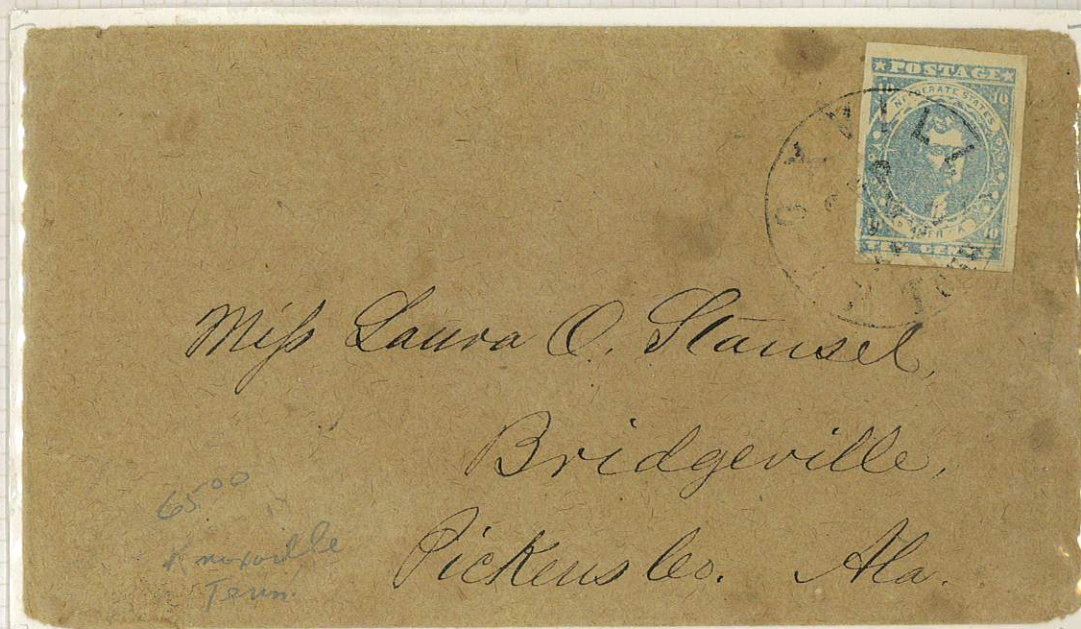 POSTAGE
10 10
CONFEDERATE STATES
OF AMERICA
10 10
TEN CENTS
OXVILL
Miss Laura O. Stansel,
Bridgeville,
Pickens Co. Ala.
65 00
Knoxville
Tenn.